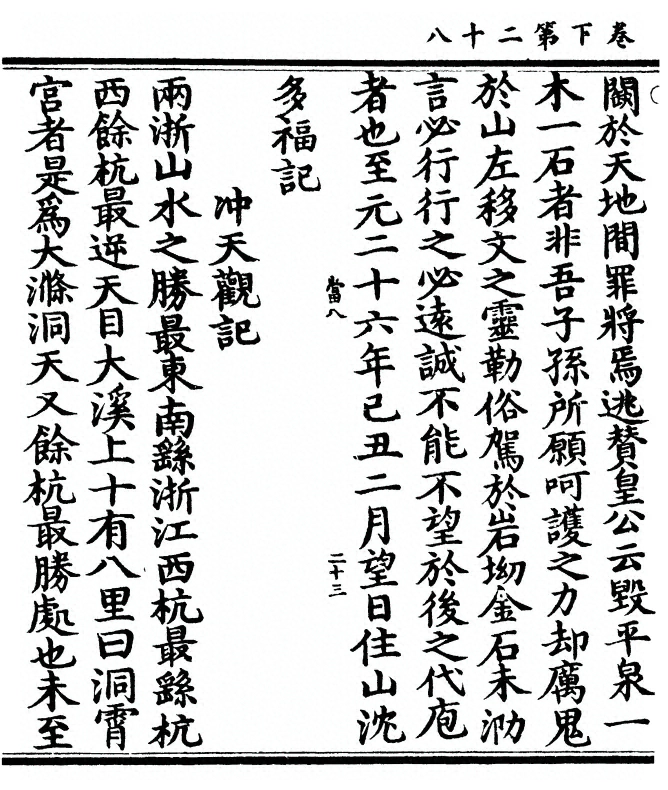 卷下第二十八
闕於天地間罪將焉逃賛皇公云毀平泉一
木一石者非吾子孫所願呵護之力却厲鬼
於山左移文之靈勒俗駕於岩坳金石未泐
言必行行之必遠誠不能不望於後之代庖
者也至元二十六年己丑二月望日住山沈
多福記
當八
二十三
冲天觀記
兩浙山水之勝最東南繇浙江西杭最繇杭
西餘杭最逆天目大溪上十有八里曰洞霄
宮者是爲大滌洞天又餘杭最勝處也未至